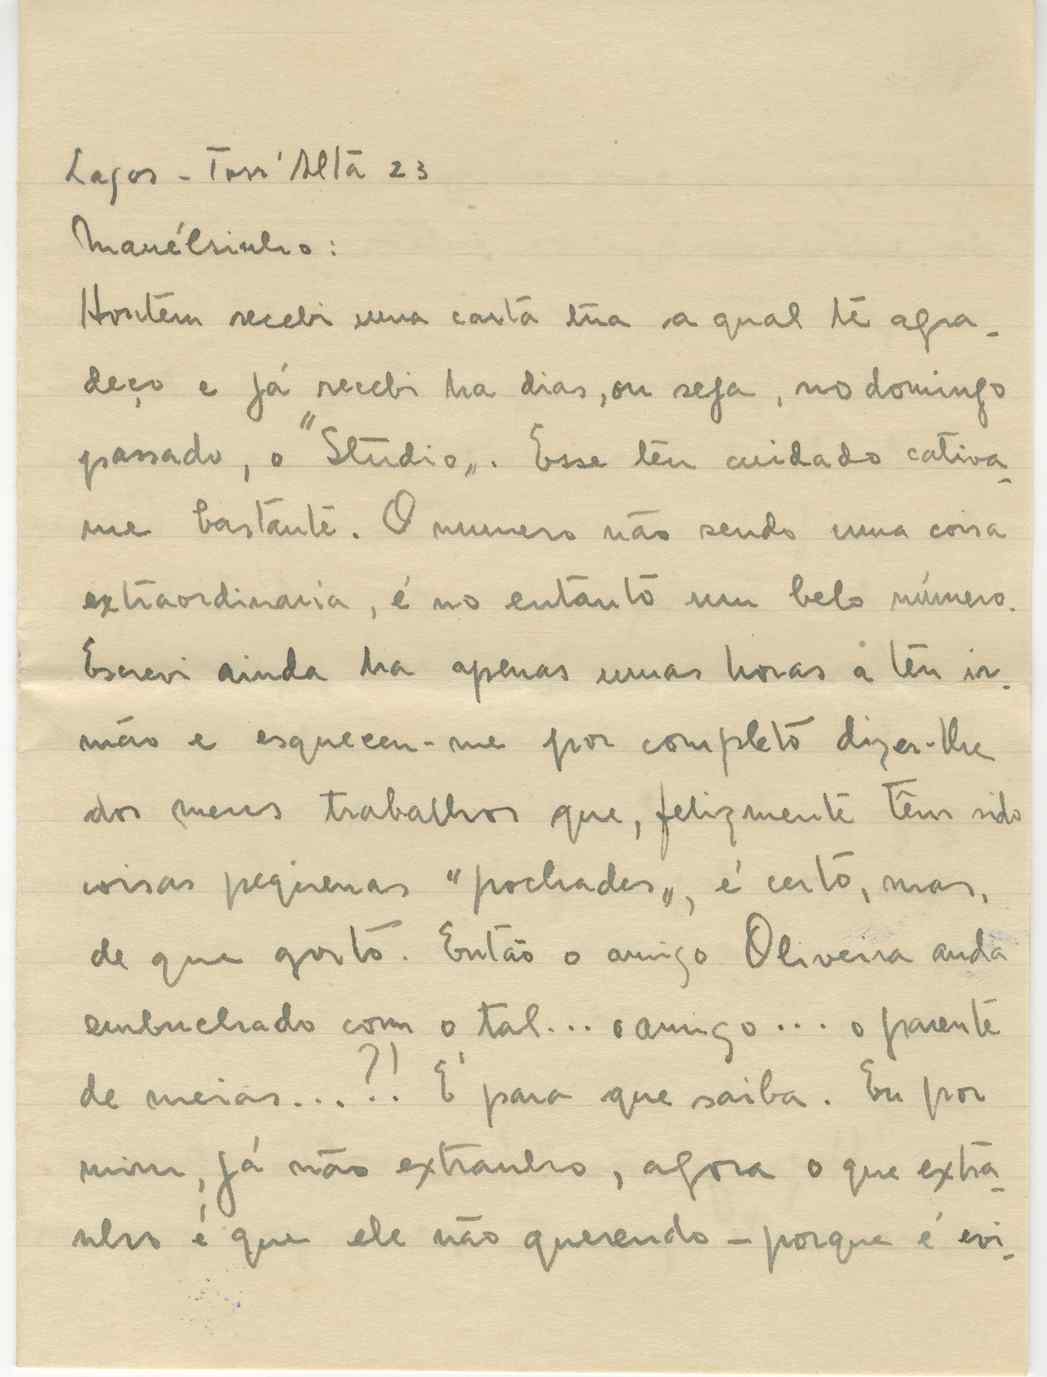 Lagos - Torr' Altа 23
Manélsinho:
Hontem recebi uma carta tua a qual te agra-
deço e já recebi ha dias, ou seja, no domingo
passado, o "Studio„. Esse teu cuidado cativa-
me bastante. O numero não sendo uma coisa
extraordinaria, é no entanto um belo número.
Escrevi ainda ha apenas umas horas a teu ir-
mão e esqueceu-me por completo dizer-lhe
dos meus trabalhos que, felizmente têm sido
coisas pequenas "pochades„, é certo, mas,
de que gosto. Então o amigo Oliveira anda
embuchado com o tal... o amigo... o parente
de meias...?!. É para que saiba. Eu por
mim, já não extranho, agora o que extra-
nho é que ele não querendo - porque é evi-